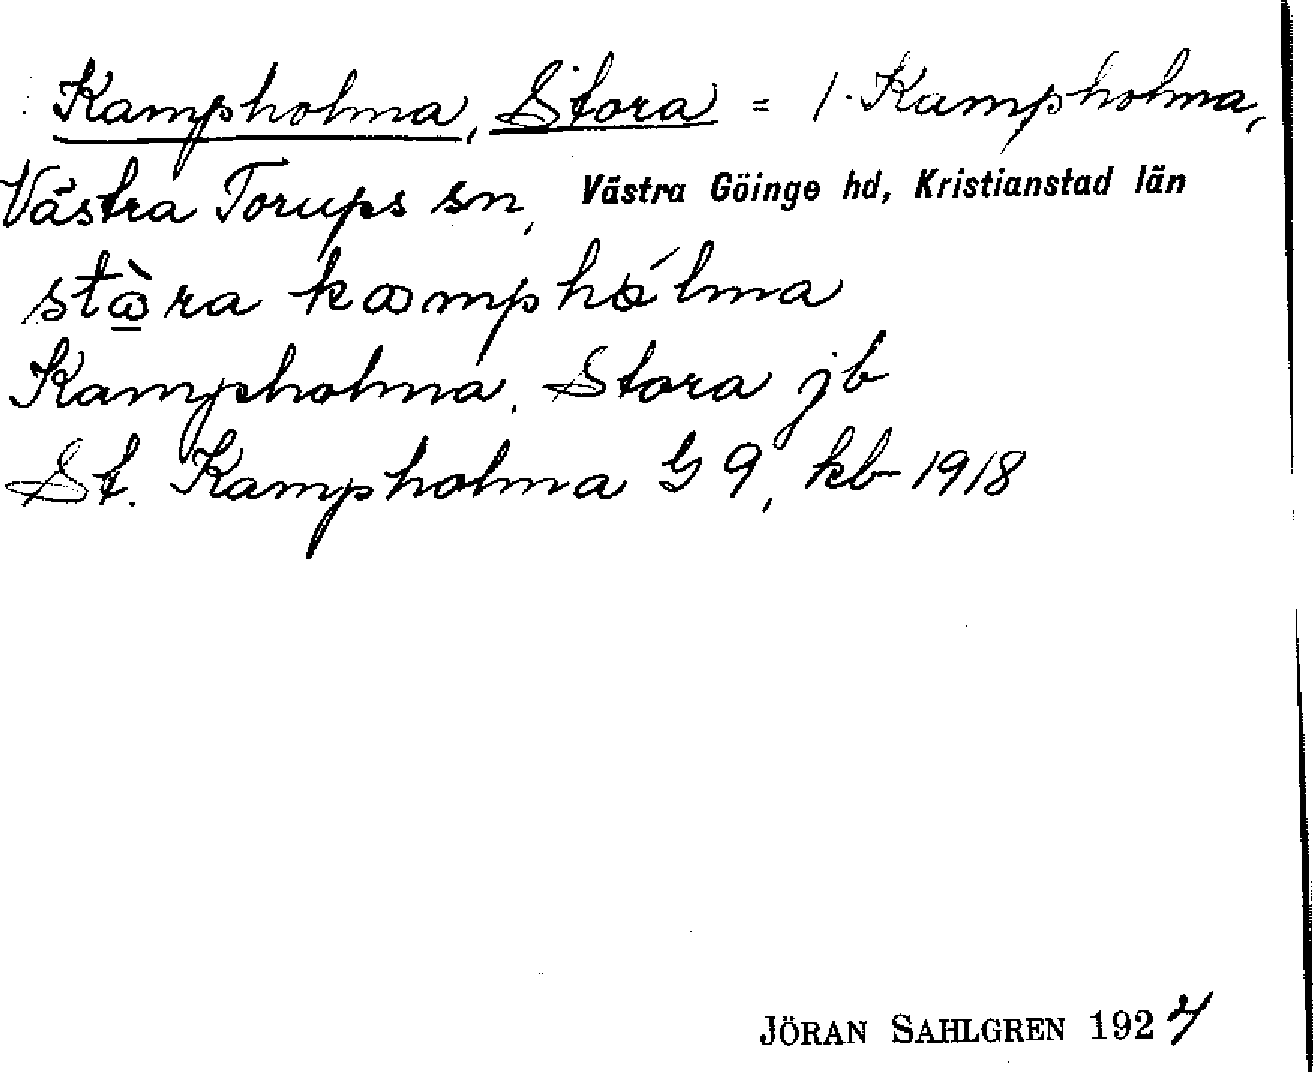 Kampholma, Stora = 1. Kampholma,
Västra Torups sn, Västra Göinge hd, Kristianstad län
Kampholma, Stora jb
St. Kampholma G 9, kb 1918
JÖRAN SAHLGREN 1924